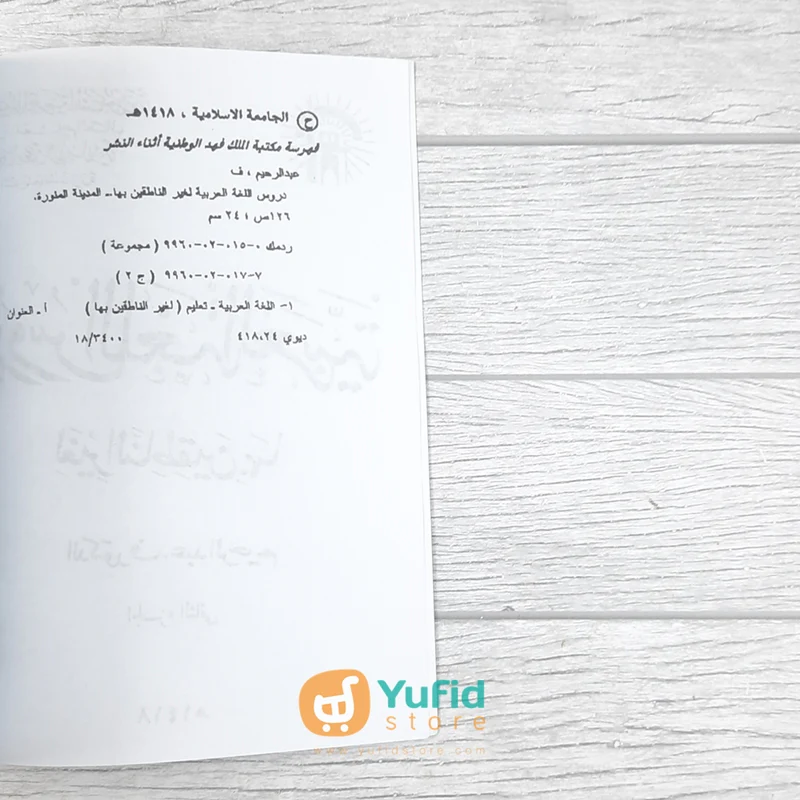 ح الجامعة الاسلامية ، ١٤١٨هـ
فهرسة مكتبة الملك فهد الوطنية أثناء النشر
عبدالرحيم ، ف
دروس اللغة العربية لغير الناطقين بها ــ المدينة المنورة.
١٢٦ص ؛ ٢٤ سم
ردمك ٠-٠١٥-٠٢-٩٩٦٠ ( مجموعة )
٧-٠١٧-٠٢-٩٩٦٠ ( ج ٢ )
١- اللغة العربية ـ تعليم ( لغير الناطقين بها ) أ ـ العنوان
ديوي ٤١٨،٢٤ ١٨/٣٤٠٠
لغير الناطقين بها
الدكتور ف. عبد الرحيم
الجزء الثاني
١٤١٨هـ
Yufid
store
www.yufidstore.com